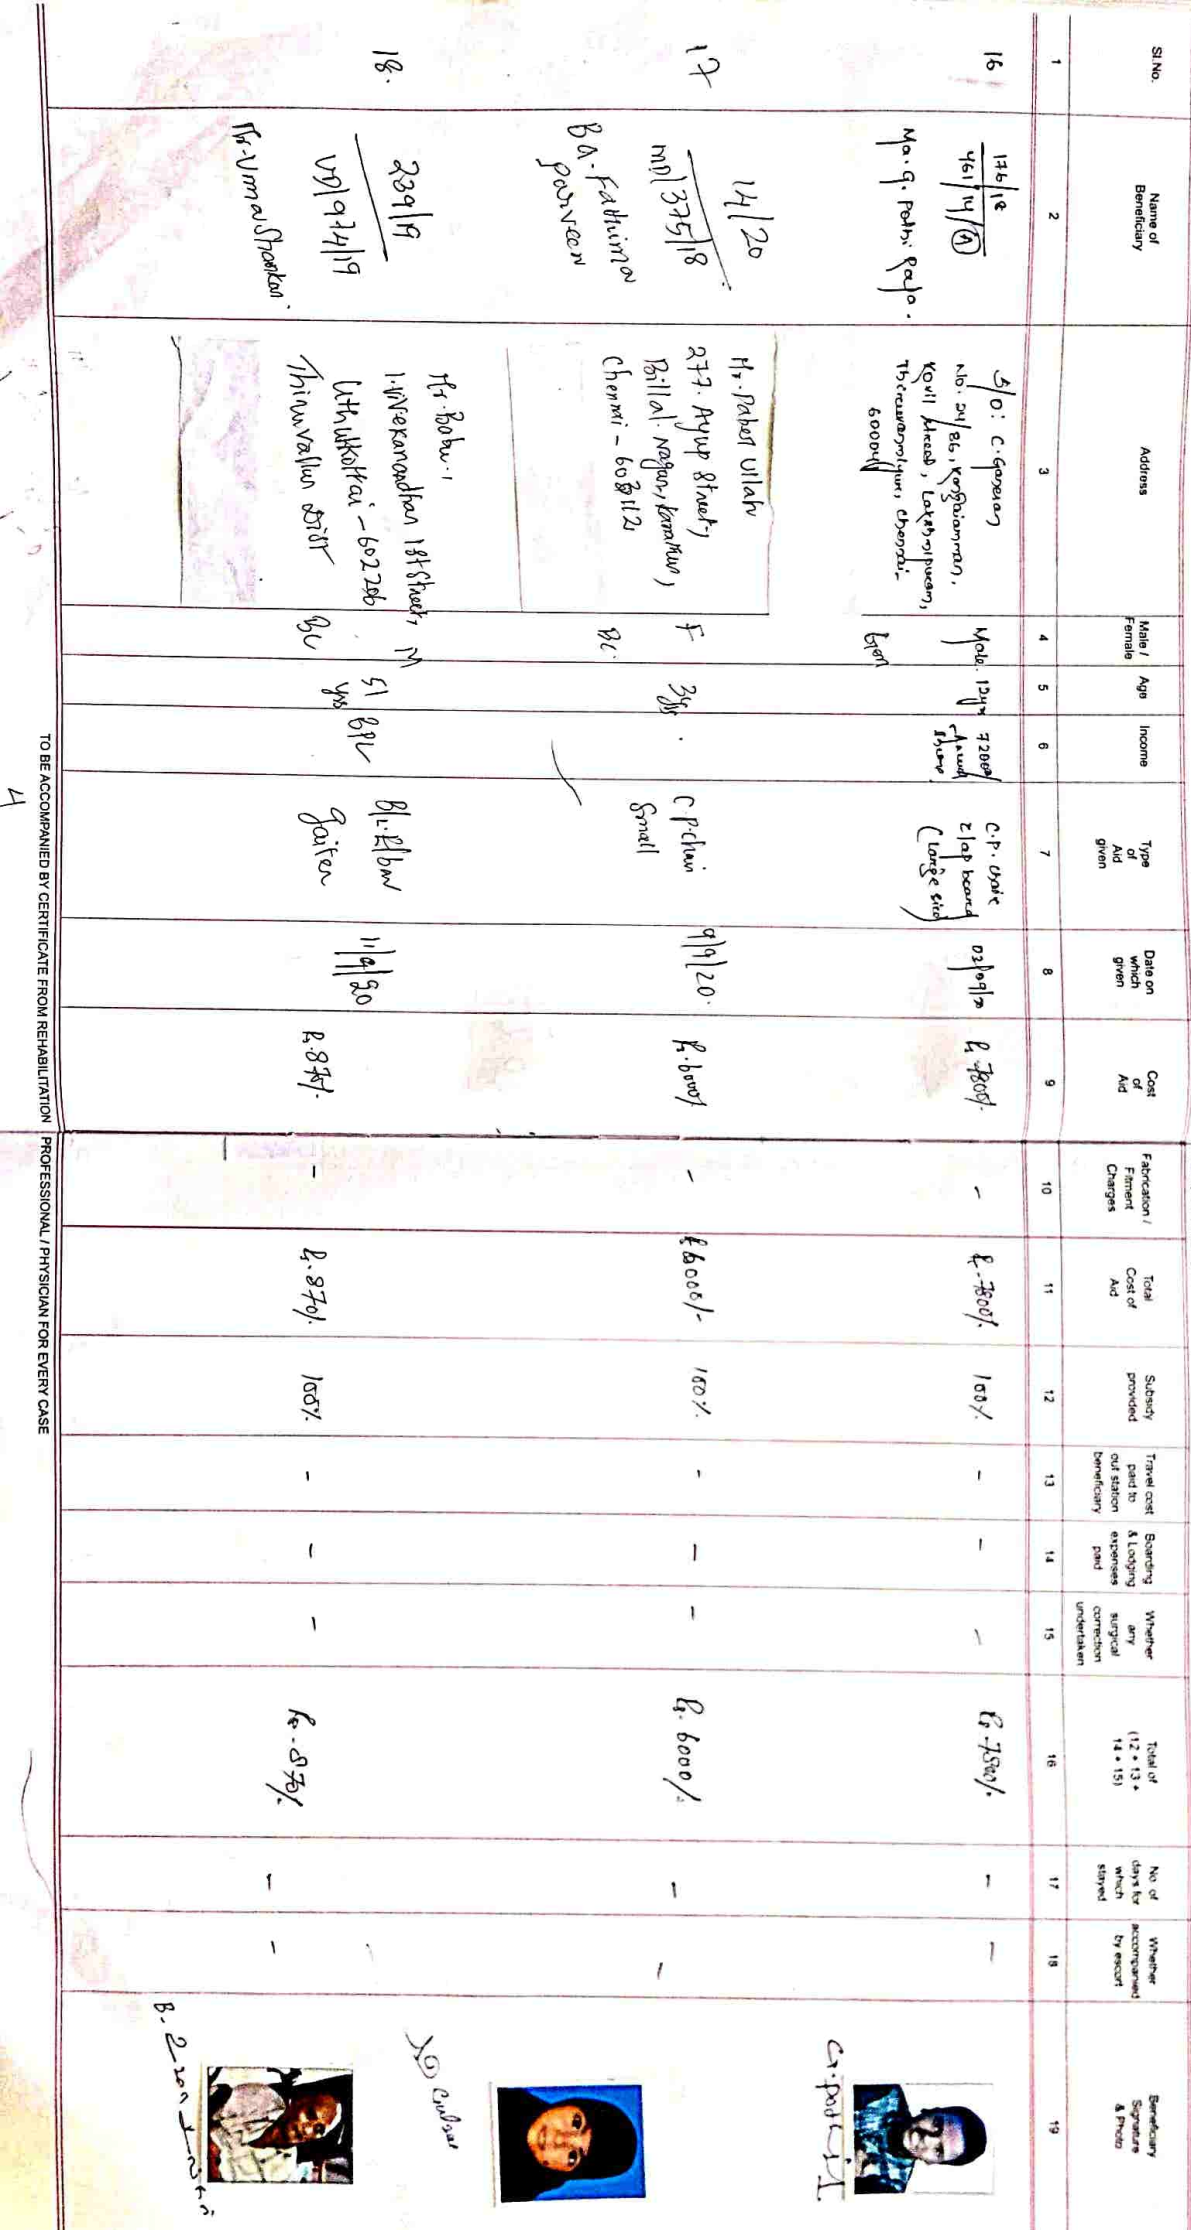 Sl.No.
Name of
Beneficiary
Address
Male /
Female
Age
Income
Type
of
Aid
given
Date on
which
given
Cost
of
Aid
Fabrication /
Fitment
Charges
Total
Cost of
Aid
Subsidy
provided
Travel cost
paid to
out station
beneficiary
Boarding
& Lodging
expenses
paid
Whether
any
surgical
correction
undertaken
Total of
(12 + 13 +
14 + 15)
No. of
days for
which
stayed
Whether
accompanied
by escort
Beneficiary
Signature
& Photo
1 2 3 4 5 6 7 8 9 10 11 12 13 14 15 16 17 18 19
16
176/18
461/14/A
Ma. G. Pothi Raja.
S/O: C. Ganesan
No. 24/86, Kangaiamman,
Kovil Street, Lakshmipuram,
Thiruvanmiyur, Chennai-
600041
Male
Gen
12yrs
72000/
C.P. chair
(large size)
02/09/20
Rs. 7800/-
-
Rs. 7800/-
100%
-
-
-
Rs. 7800/-
-
-
17
14/20
MD/375/18
BA. Fathima
parveen
277. Ayup Street,
Billal. Nagar,
Chennai -
F
BC.
3yrs
C.P. chair
Small
9/9/20.
Rs. 6000/-
-
Rs. 6000/-
100%
-
-
-
Rs. 6000/-
-
-
18.
239/19
VD/974/19
Thr. Uma Shankar.
Mr. Babu..
1. Vivekanandhan 1st Street,
Uthukottai - 602206
Thiruvallur Dist
M
BC
51
yrs
BPL
gaiter
11/9/20
Rs. 870/-
-
Rs. 870/-
100%
-
-
-
Rs. 870/-
-
-
TO BE ACCOMPANIED BY CERTIFICATE FROM REHABILITATION PROFESSIONAL / PHYSICIAN FOR EVERY CASE
4